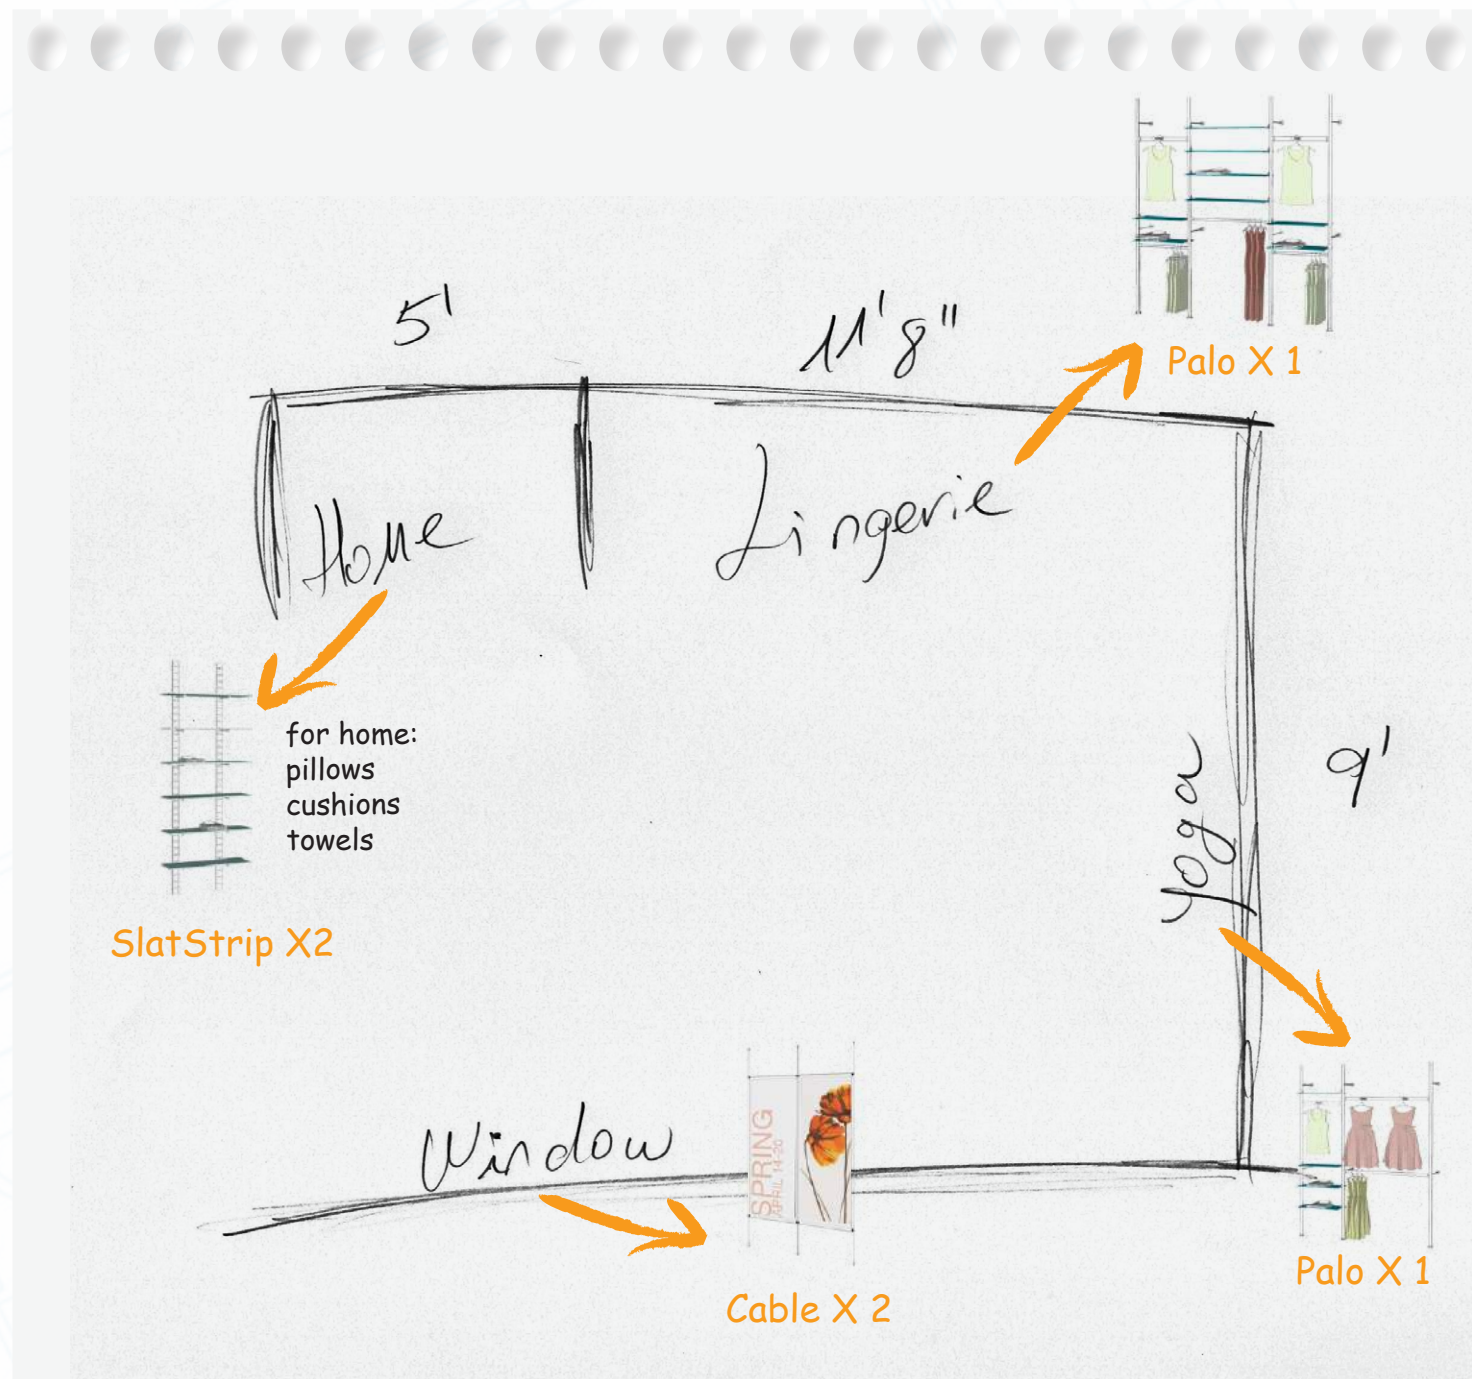 5'
11'8"
Palo X 1
Home
Lingerie
for home:
pillows
cushions
towels
Yoga
9'
SlatStrip X2
Window
SPRING
APRIL 14-20
Palo X 1
Cable X 2